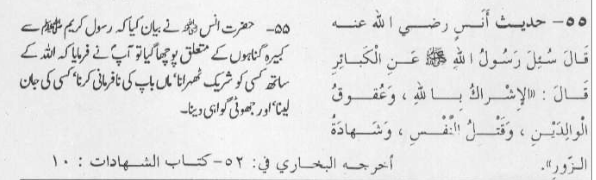 ۵۵- حديث أَنَسٍ رضي الله عنه
قَالَ سُئِلَ رَسُولُ اللهِ ﷺ عَنِ الْكَبَائِرِ
قَالَ: «الإِشْرَاكُ بِاللهِ، وَعُقُوقُ
الْوَالِدَيْنِ، وَقَتْلُ النَّفْسِ، وَشَهَادَةُ
الزُّورِ».
۵۵- حضرت انس رضی اللہ عنہ نے بیان کیا کہ رسول کریم ﷺ سے
کبیرہ گناہوں کے متعلق پوچھا گیا تو آپ نے فرمایا کہ اللہ کے
ساتھ کسی کو شریک ٹھہرانا‘ ماں باپ کی نافرمانی کرنا‘ کسی کی جان
لینا‘ اور جھوٹی گواہی دینا۔
أخرجه البخاري في: ۵۲- كتاب الشهادات: ۱۰